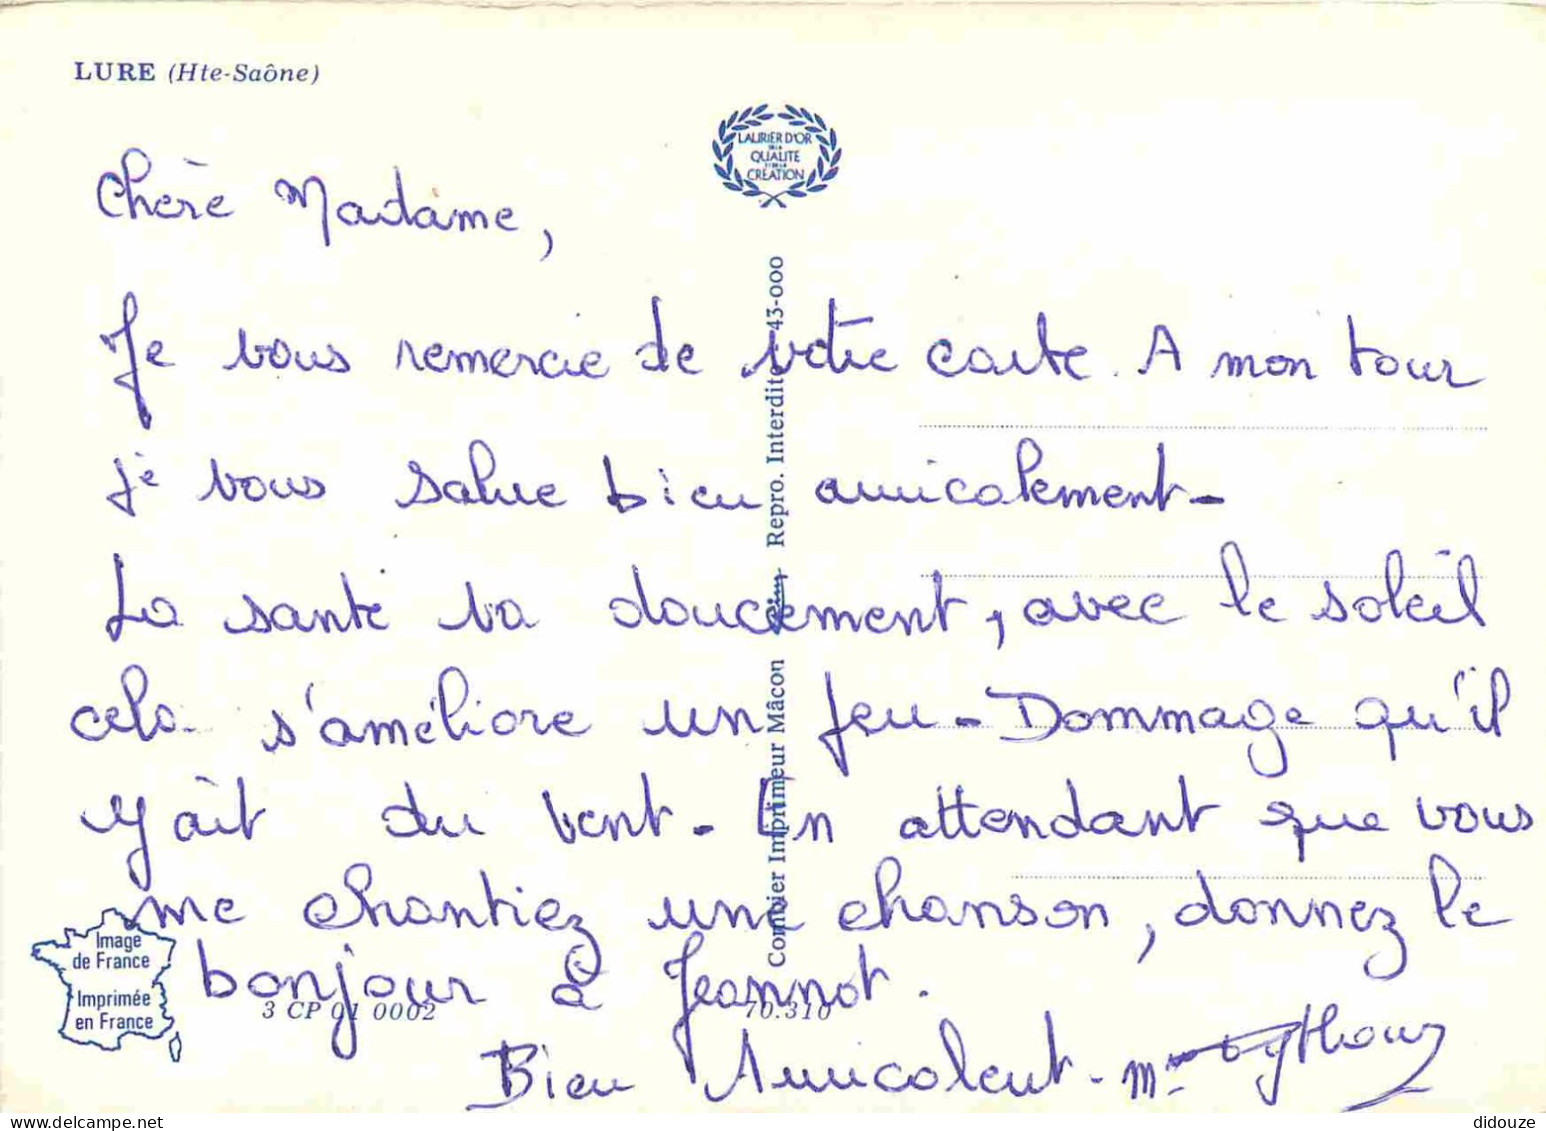 LURE (Hte-Saône)
LAURIER D'OR
DE LA
QUALITE
ET DE LA
CRÉATION
Chère Madame,
Je vous remercie de votre carte. A mon tour
je vous salue bien amicalement-
La santé va doucement, avec le soleil
cela s'améliore un peu - Dommage qu'il
y ait du vent - En attendant que vous
me chantiez une chanson, donnez le
bonjour à Jeannot.
Bien Amicalent - Mme
Combier Imprimeur Mâcon
Repro. Interdite 43-000
Image
de France
Imprimée
en France
3 CP 01 0002
70.310
didouze